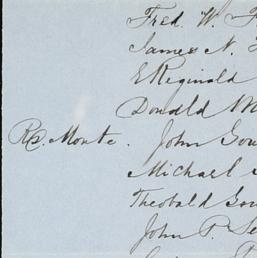 Fred. W.
James N.
E Reginald
Donald M
Rd. Monte. John Gou
Michael
Theobald Gou
John P. Se